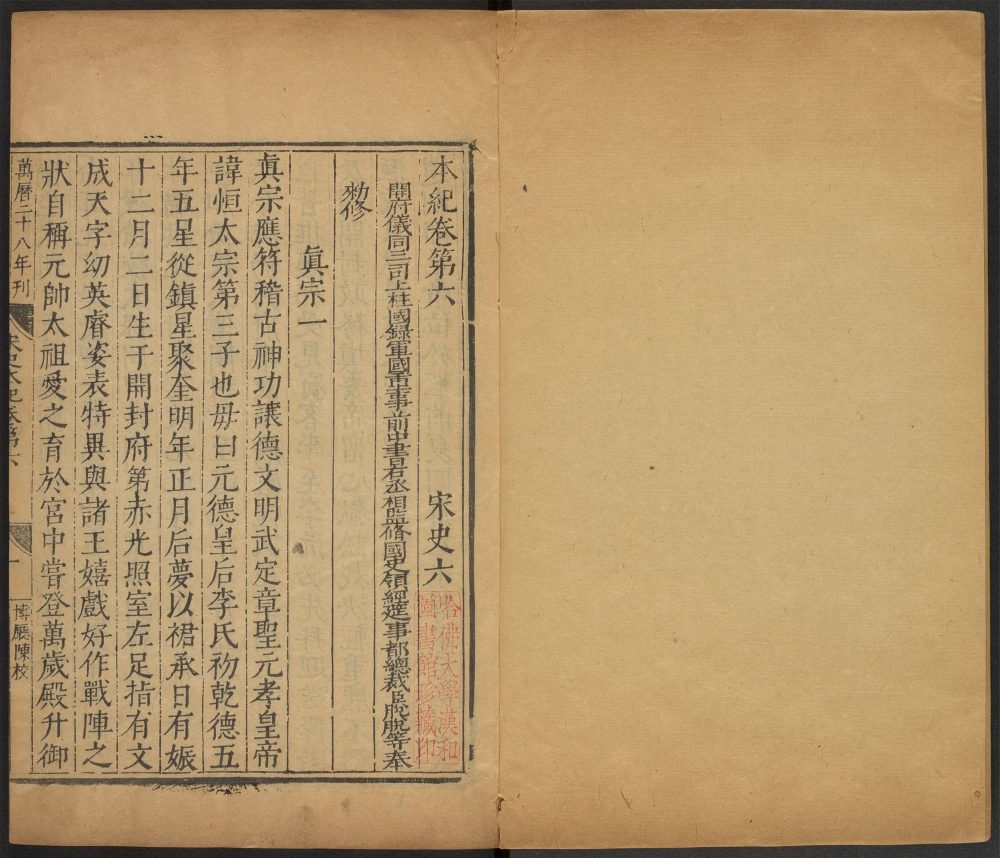 本紀卷第六 宋史六
哈佛大學漢和
圖書館珍藏印
開府儀同三司上柱國錄軍國重事前中書右丞相監脩國史領經筵事都總裁臣脫脫等奉
勑修
眞宗一
眞宗應符稽古神功讓德文明武定章聖元孝皇帝
諱恒太宗第三子也毋曰元德皇后李氏初乾德五
年五星從鎮星聚奎明年正月后夢以裙承日有娠
十二月二日生于開封府第赤光照室左足指有文
成天字幼英睿姿表特異與諸王嬉戲好作戰陣之
狀自稱元帥太祖愛之育於宮中嘗登萬歲殿升御
萬曆二十八年刊
宋史本紀卷第六
一
陳校